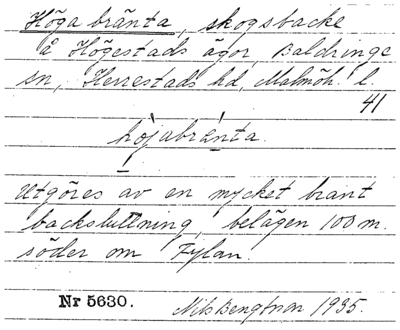 Höga bränta, skogsbacke
å Högestads ägor, Baldringe
sn, Herrestads hd, Malmöh. l
41
höjabränta.
Utgöres av en mycket brant
backsluttning, belägen 100 m.
söder om Fylan.
Nr 5630. Nils Bengtson 1935.